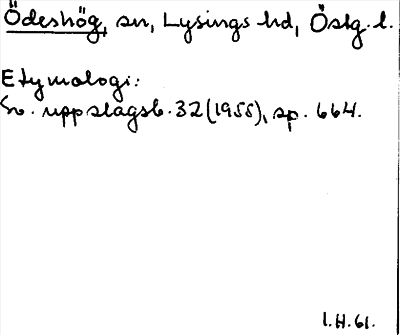 Ödeshög, sn, Lysings hd, Östg. l.
Etymologi:
Sv. uppslagsb. 32 (1955), sp. 664.
1.H.61.